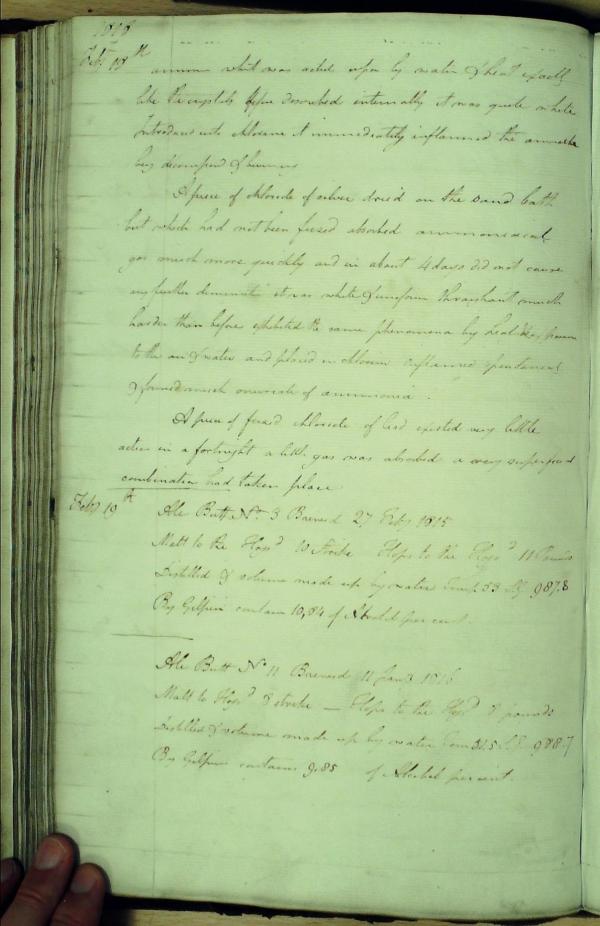 1818
Feby 18th
ammon what was acted upon by water & heat exactly
like the crystals before described internally it was quite white
Introduced into chlorine it immediately inflamed the ammonia
being decomposed & burning
A piece of chloride of silver dried on the sand bath
but which had not been fused absorbed ammoniacal
gas much more quickly and in about 4 days did not cause
any further diminution it was white & uniform throughout much
harder than before exhibited the same phenomena by heat
to the air & water and placed in chlorine inflamed spontaneously
& formed much muriate of ammonia.
A piece of fused chloride of lead exerted very little
action in a fortnight a little gas was absorbed a very superficial
combination had taken place
Feby 19th
Ale Butt No. 3 Brewed 27 Feby 1815
Malt to the Hogd 10 Strike Hops to the Hogd 11 Pounds
Distilled & volume made up by water Temp 53 S.G. 987.8
By Gilpin contain 10,84 of Alcohol per cent.
Ale Butt No 11 Brewed 11 Jany 1816
Malt to Hogd 8 strike — Hops to the Hogd 8 pounds
Distilled & volume made up by water Tem 51.5 S.G. 988.7
By Gilpin contains 9,85 of Alcohol per cent.